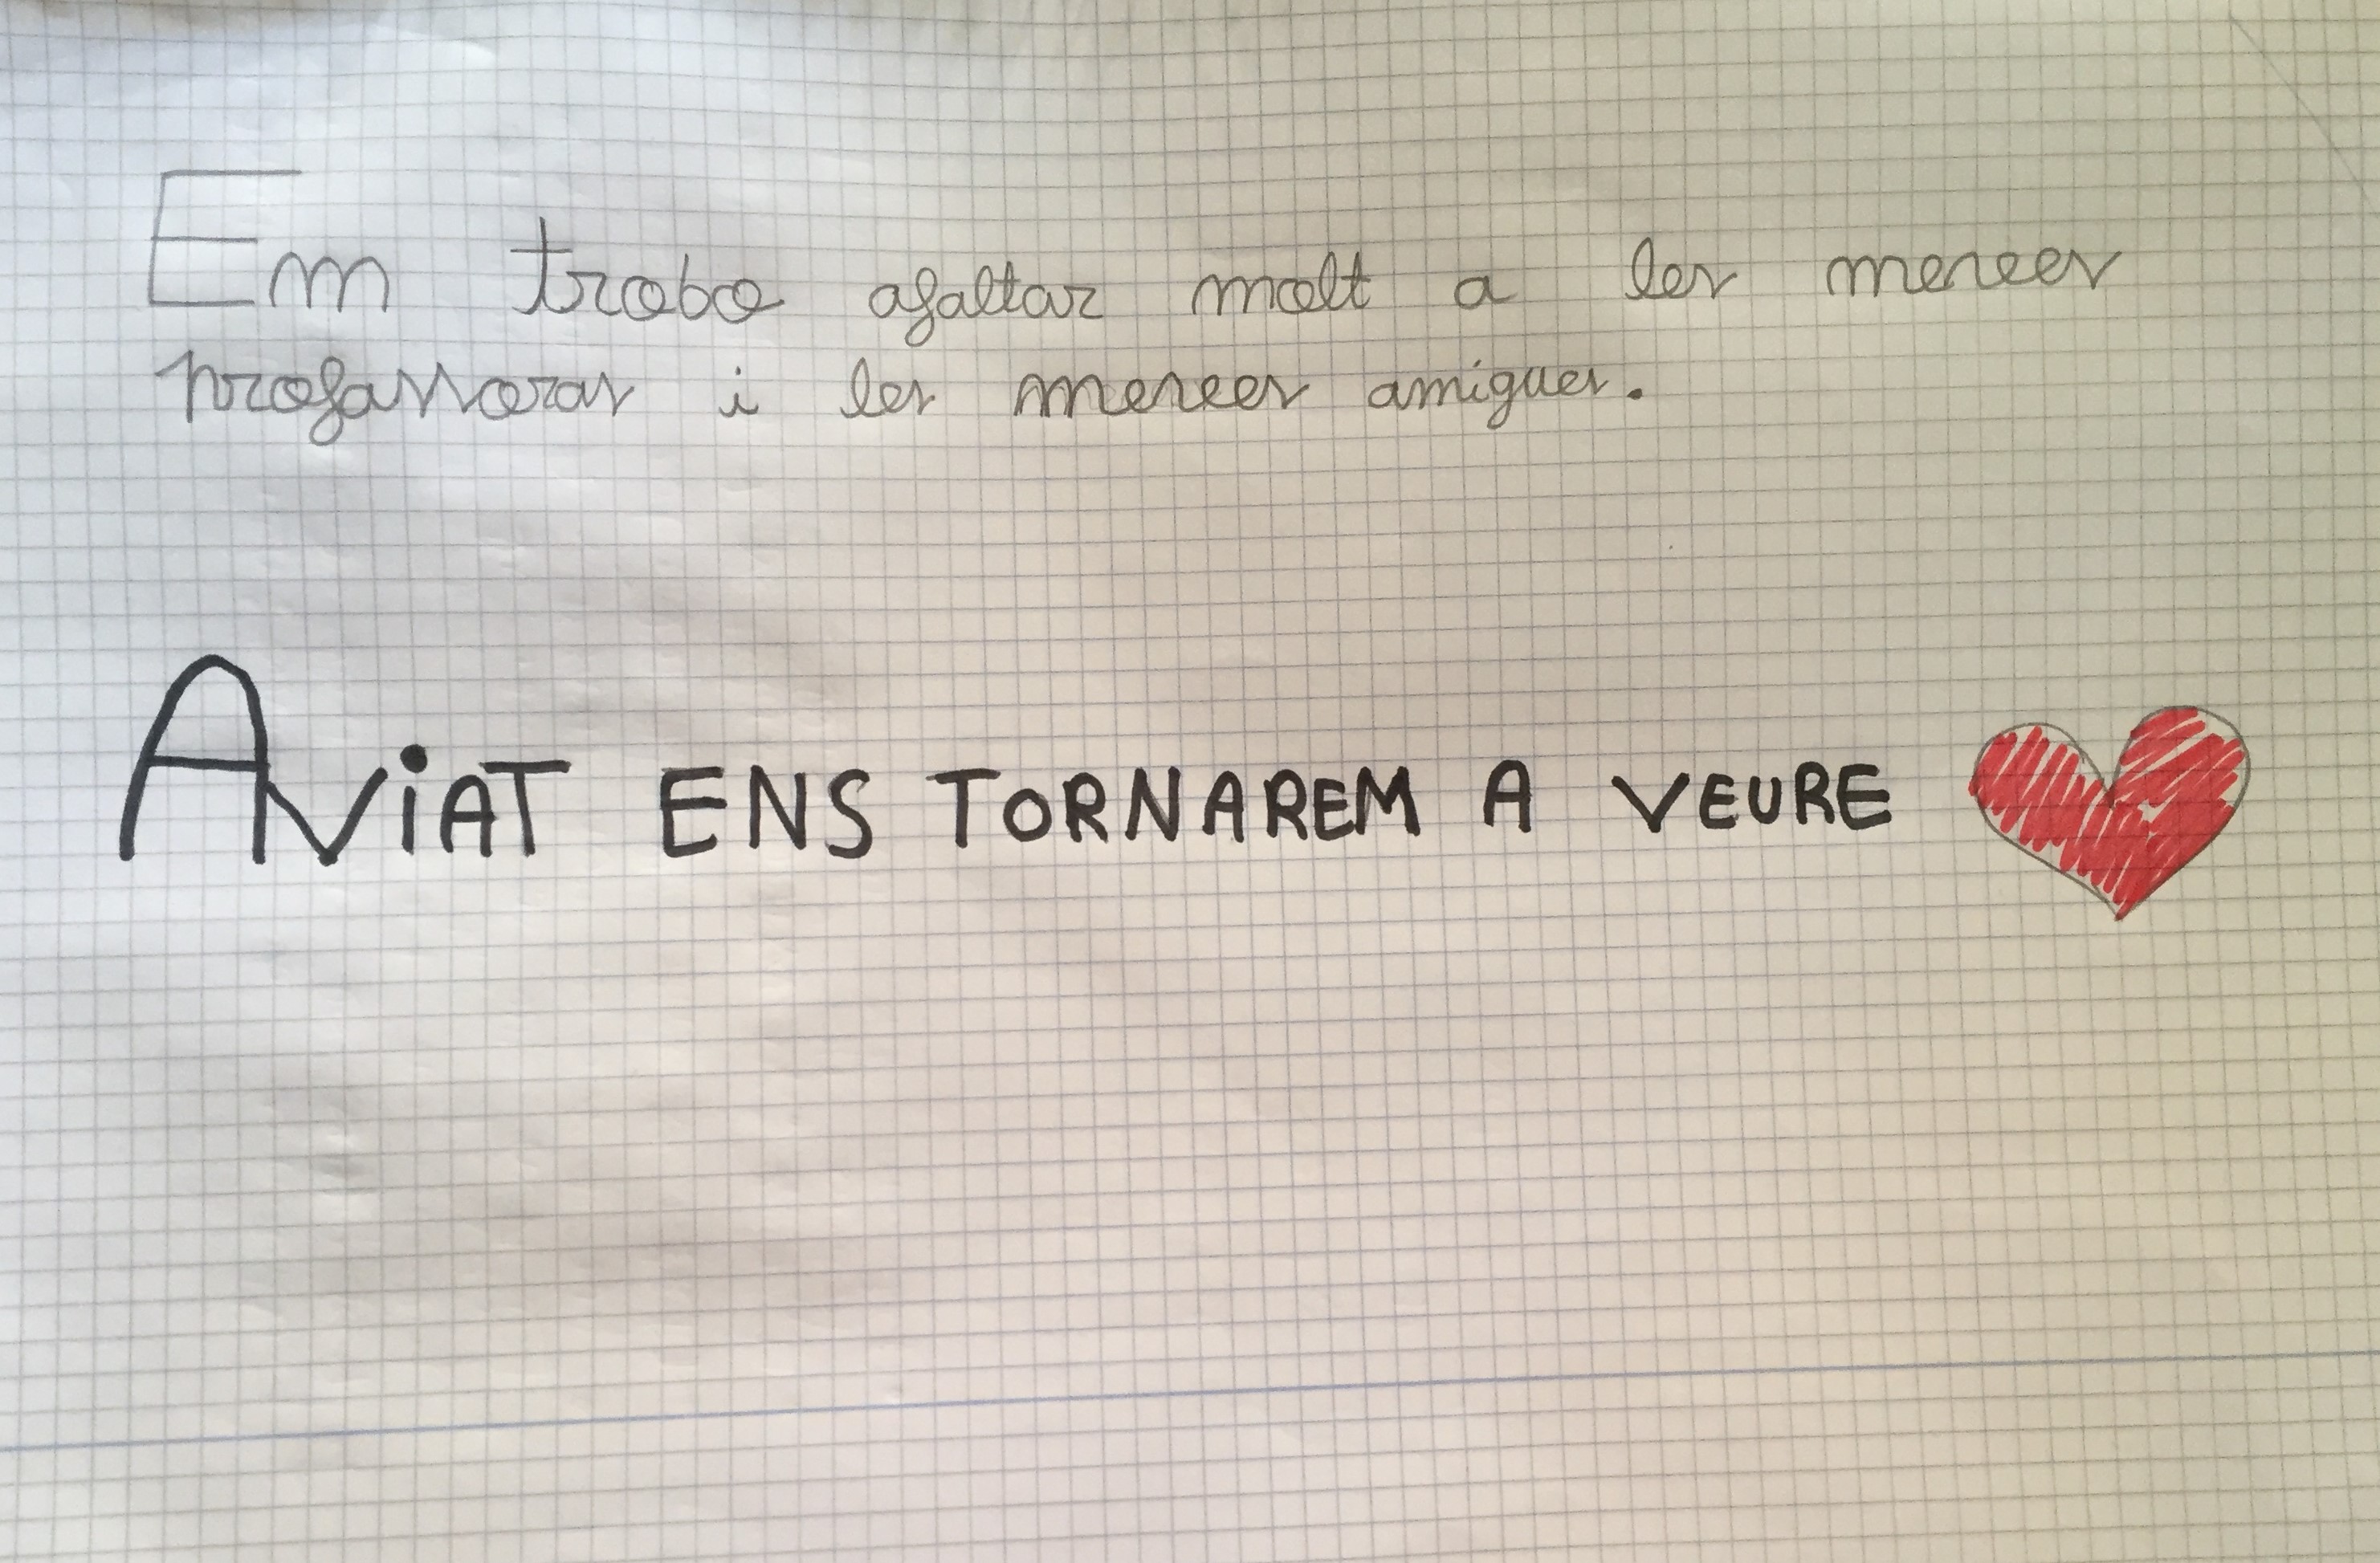 Em trobo afaltar molt a les meves
profassoras i les meves amigues.
AViAT ENS TORNAREM A VEURE